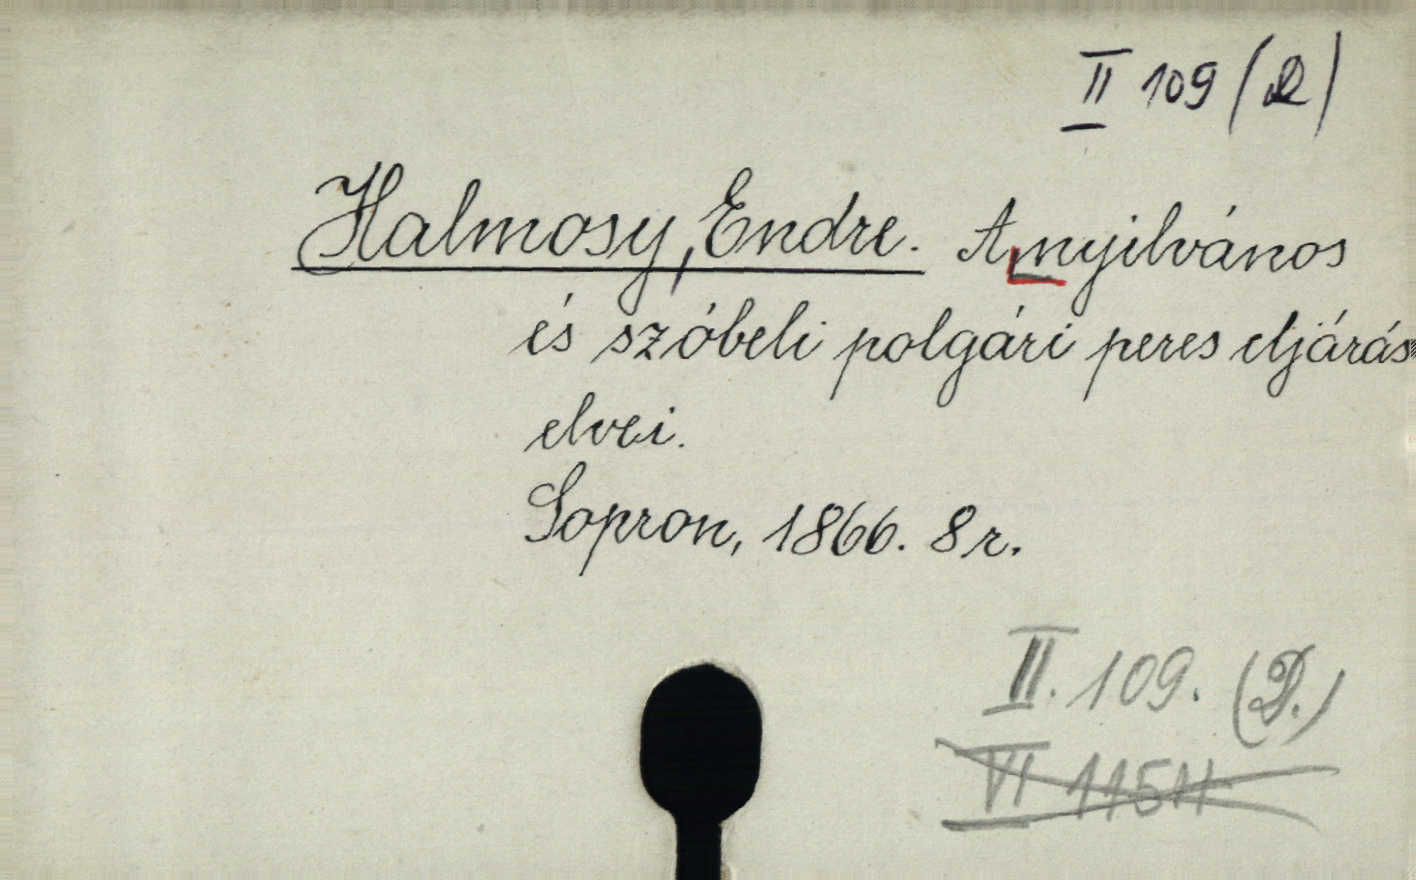 II 109 (D)
Halmosy, Endre. A nyilvános
és szóbeli polgári peres eljárás
elvei.
Sopron, 1866. 8r.
II. 109. (D.)
VI 11511